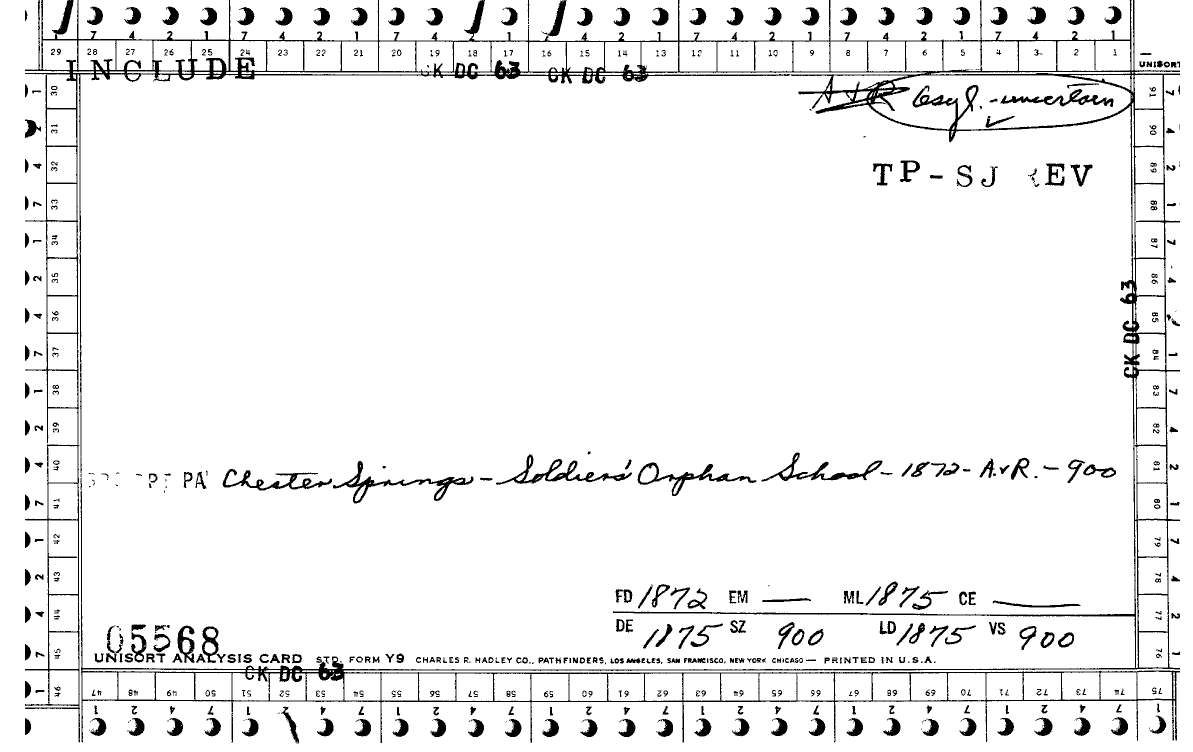 7 4 2 1 7 4 2 1 7 4 2 1 7 4 2 1 7 4 2 1 7 4 2 1 7 4 2 1
29 28 27 26 25 24 23 22 21 20 19 18 17 16 15 14 13 12 11 10 9 8 7 6 5 4 3 2 1
UNISORT
INCLUDE
CK DC 63 CK DC 63
A & R asyl. - uncertain
TP-SJ REV
CK DC 63
PA Chester Springs - Soldiers' Orphan School - 1872 - A&R. - 900
FD 1872 EM — ML 1875 CE —
DE 1875 SZ 900 LD 1875 VS 900
05568
UNISORT ANALYSIS CARD STD. FORM Y9 CHARLES R. HADLEY CO., PATHFINDERS, LOS ANGELES, SAN FRANCISCO, NEW YORK CHICAGO — PRINTED IN U.S.A.
CK DC 63
46 47 48 49 50 51 52 53 54 55 56 57 58 59 60 61 62 63 64 65 66 67 68 69 70 71 72 73 74 75
1 2 4 7 1 2 4 7 1 2 4 7 1 2 4 7 1 2 4 7 1 2 4 7 1 2 4 7